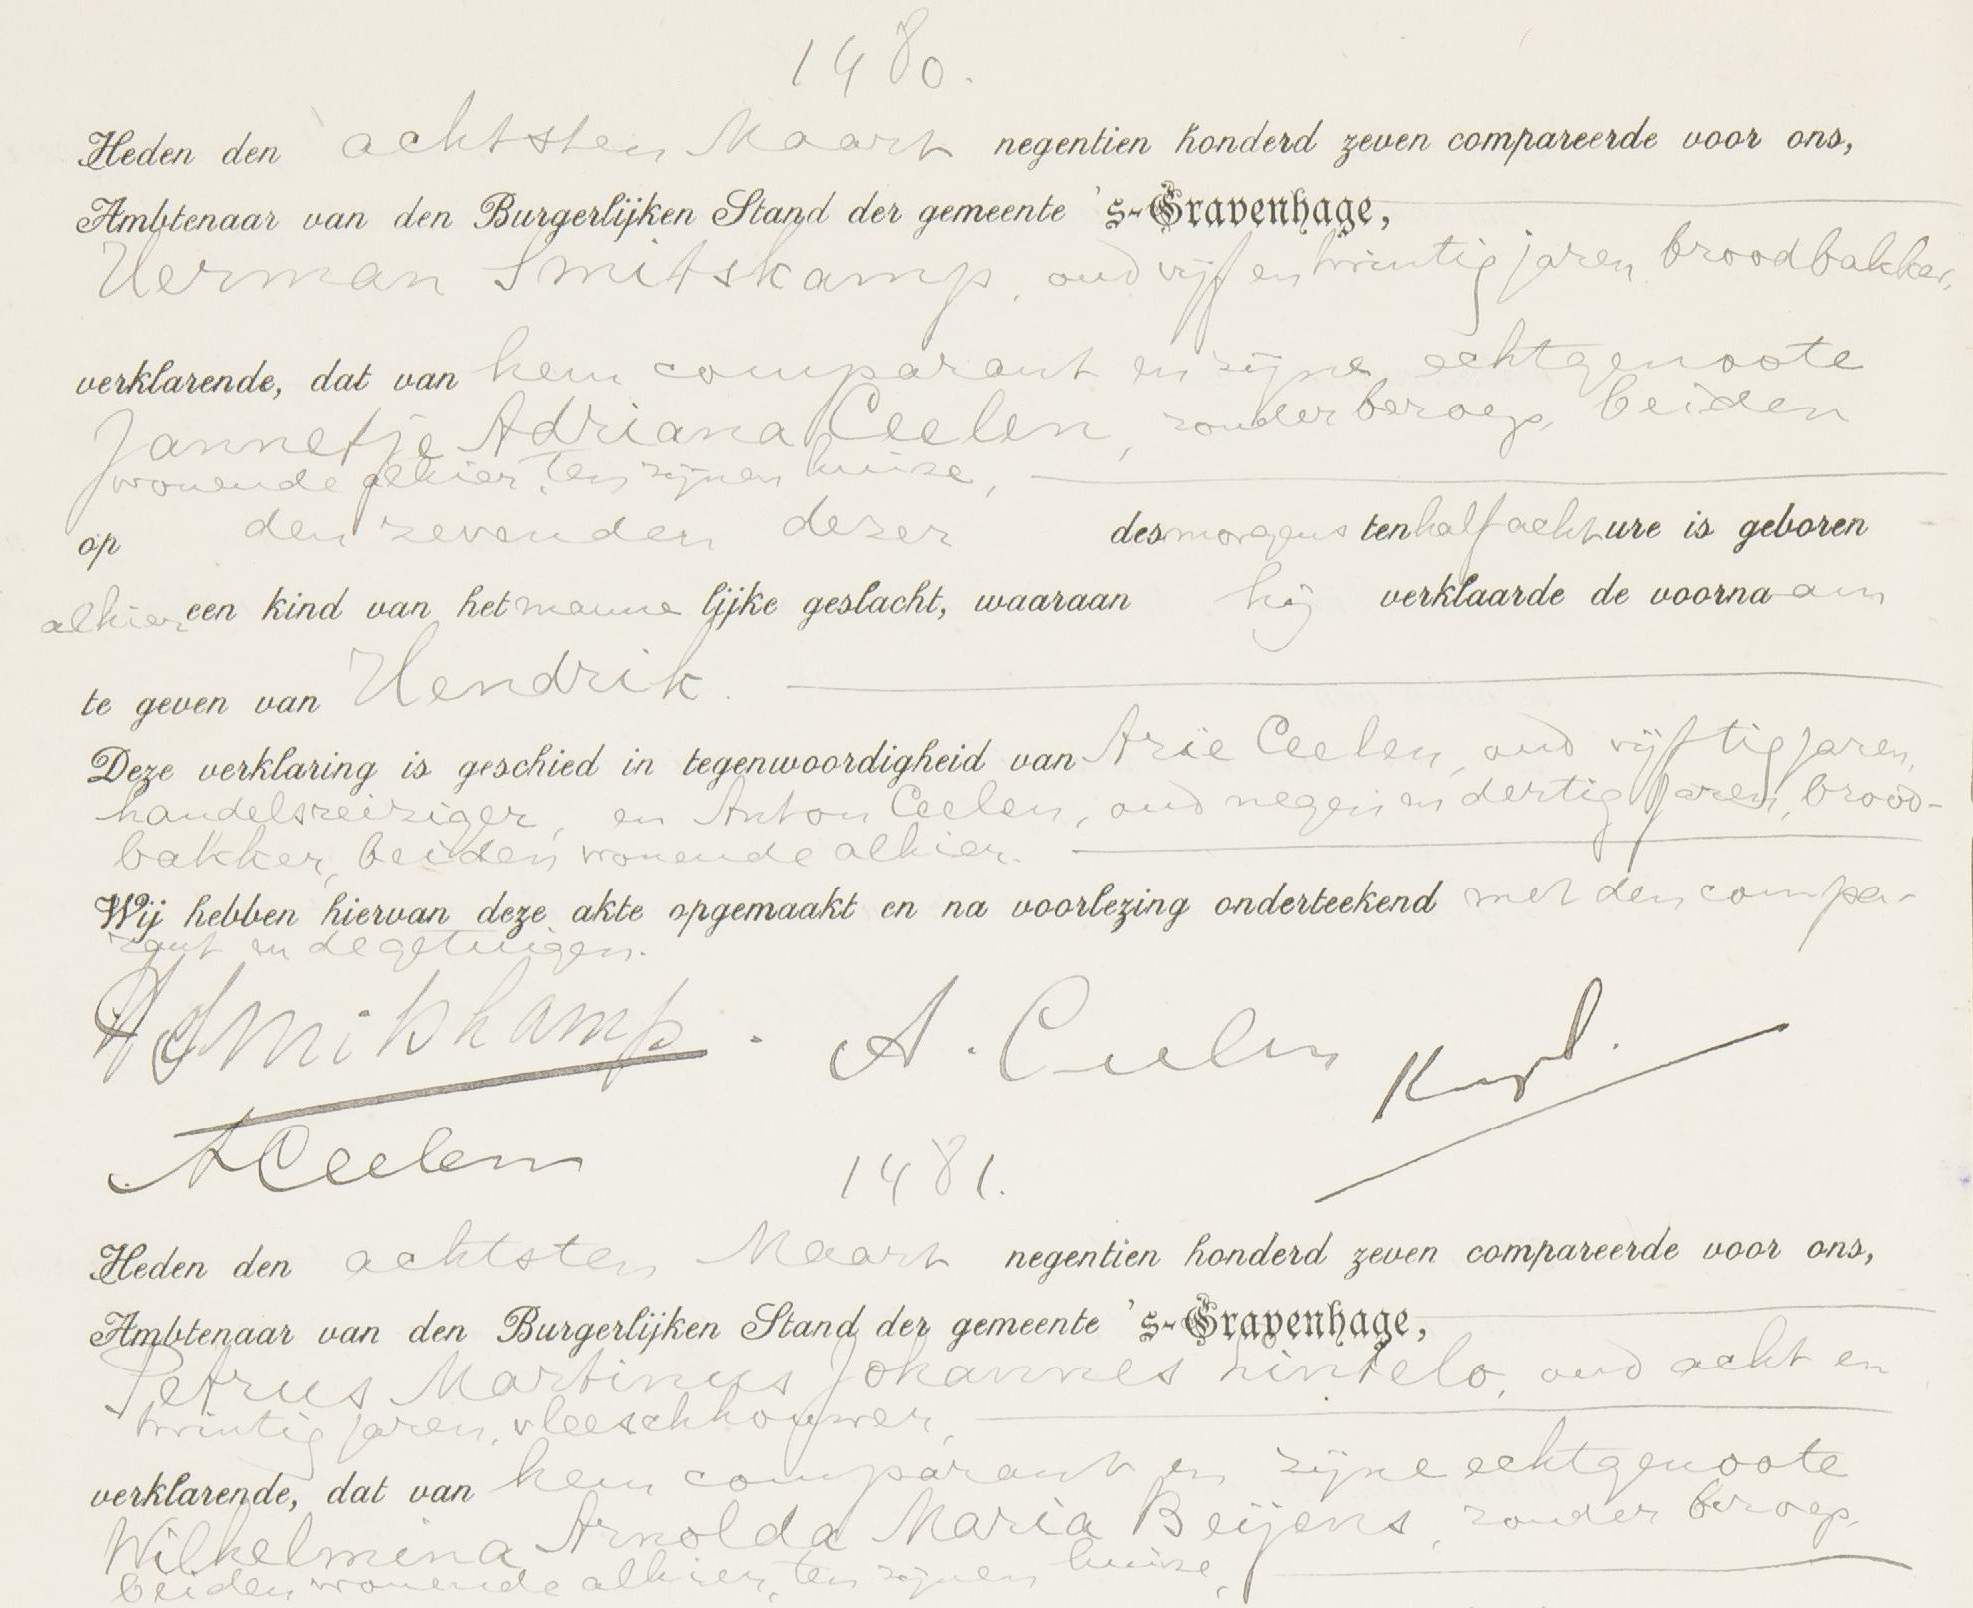 1480.
Heden den achtsten Maart negentien honderd zeven compareerde voor ons,
Ambtenaar van den Burgerlijken Stand der gemeente 's-Gravenhage,
Herman Smitskamp, oud vijf en twintig jaren, broodbakker,
verklarende, dat van hem comparant en zijne echtgenoote
Jannetje Adriana Ceelen, zonder beroep, beiden
wonende alhier, ten zijnen huize,
op den zevenden dezer des morgens ten half acht ure is geboren
alhier een kind van het manne lijke geslacht, waaraan hij verklaarde de voorna am
te geven van Hendrik.
Deze verklaring is geschied in tegenwoordigheid van Arie Ceelen, oud vijftig jaren,
handelsreiziger, en Anton Ceelen, oud negen en dertig jaren, brood-
bakker, beiden wonende alhier.
Wij hebben hiervan deze akte opgemaakt en na voorlezing onderteekend met den compa-
rant en de getuigen.
H Smitskamp. A. Ceelen
A Ceelen
1481.
Heden den achtsten Maart negentien honderd zeven compareerde voor ons,
Ambtenaar van den Burgerlijken Stand der gemeente 's-Gravenhage,
Petrus Martinus Johannes Lintelo, oud acht en
twintig jaren, vleeschhouwer,
verklarende, dat van hem comparant en zijne echtgenoote
Wilhelmina Arnolda Maria Beijens, zonder beroep,
beiden wonende alhier, ten zijnen huize,